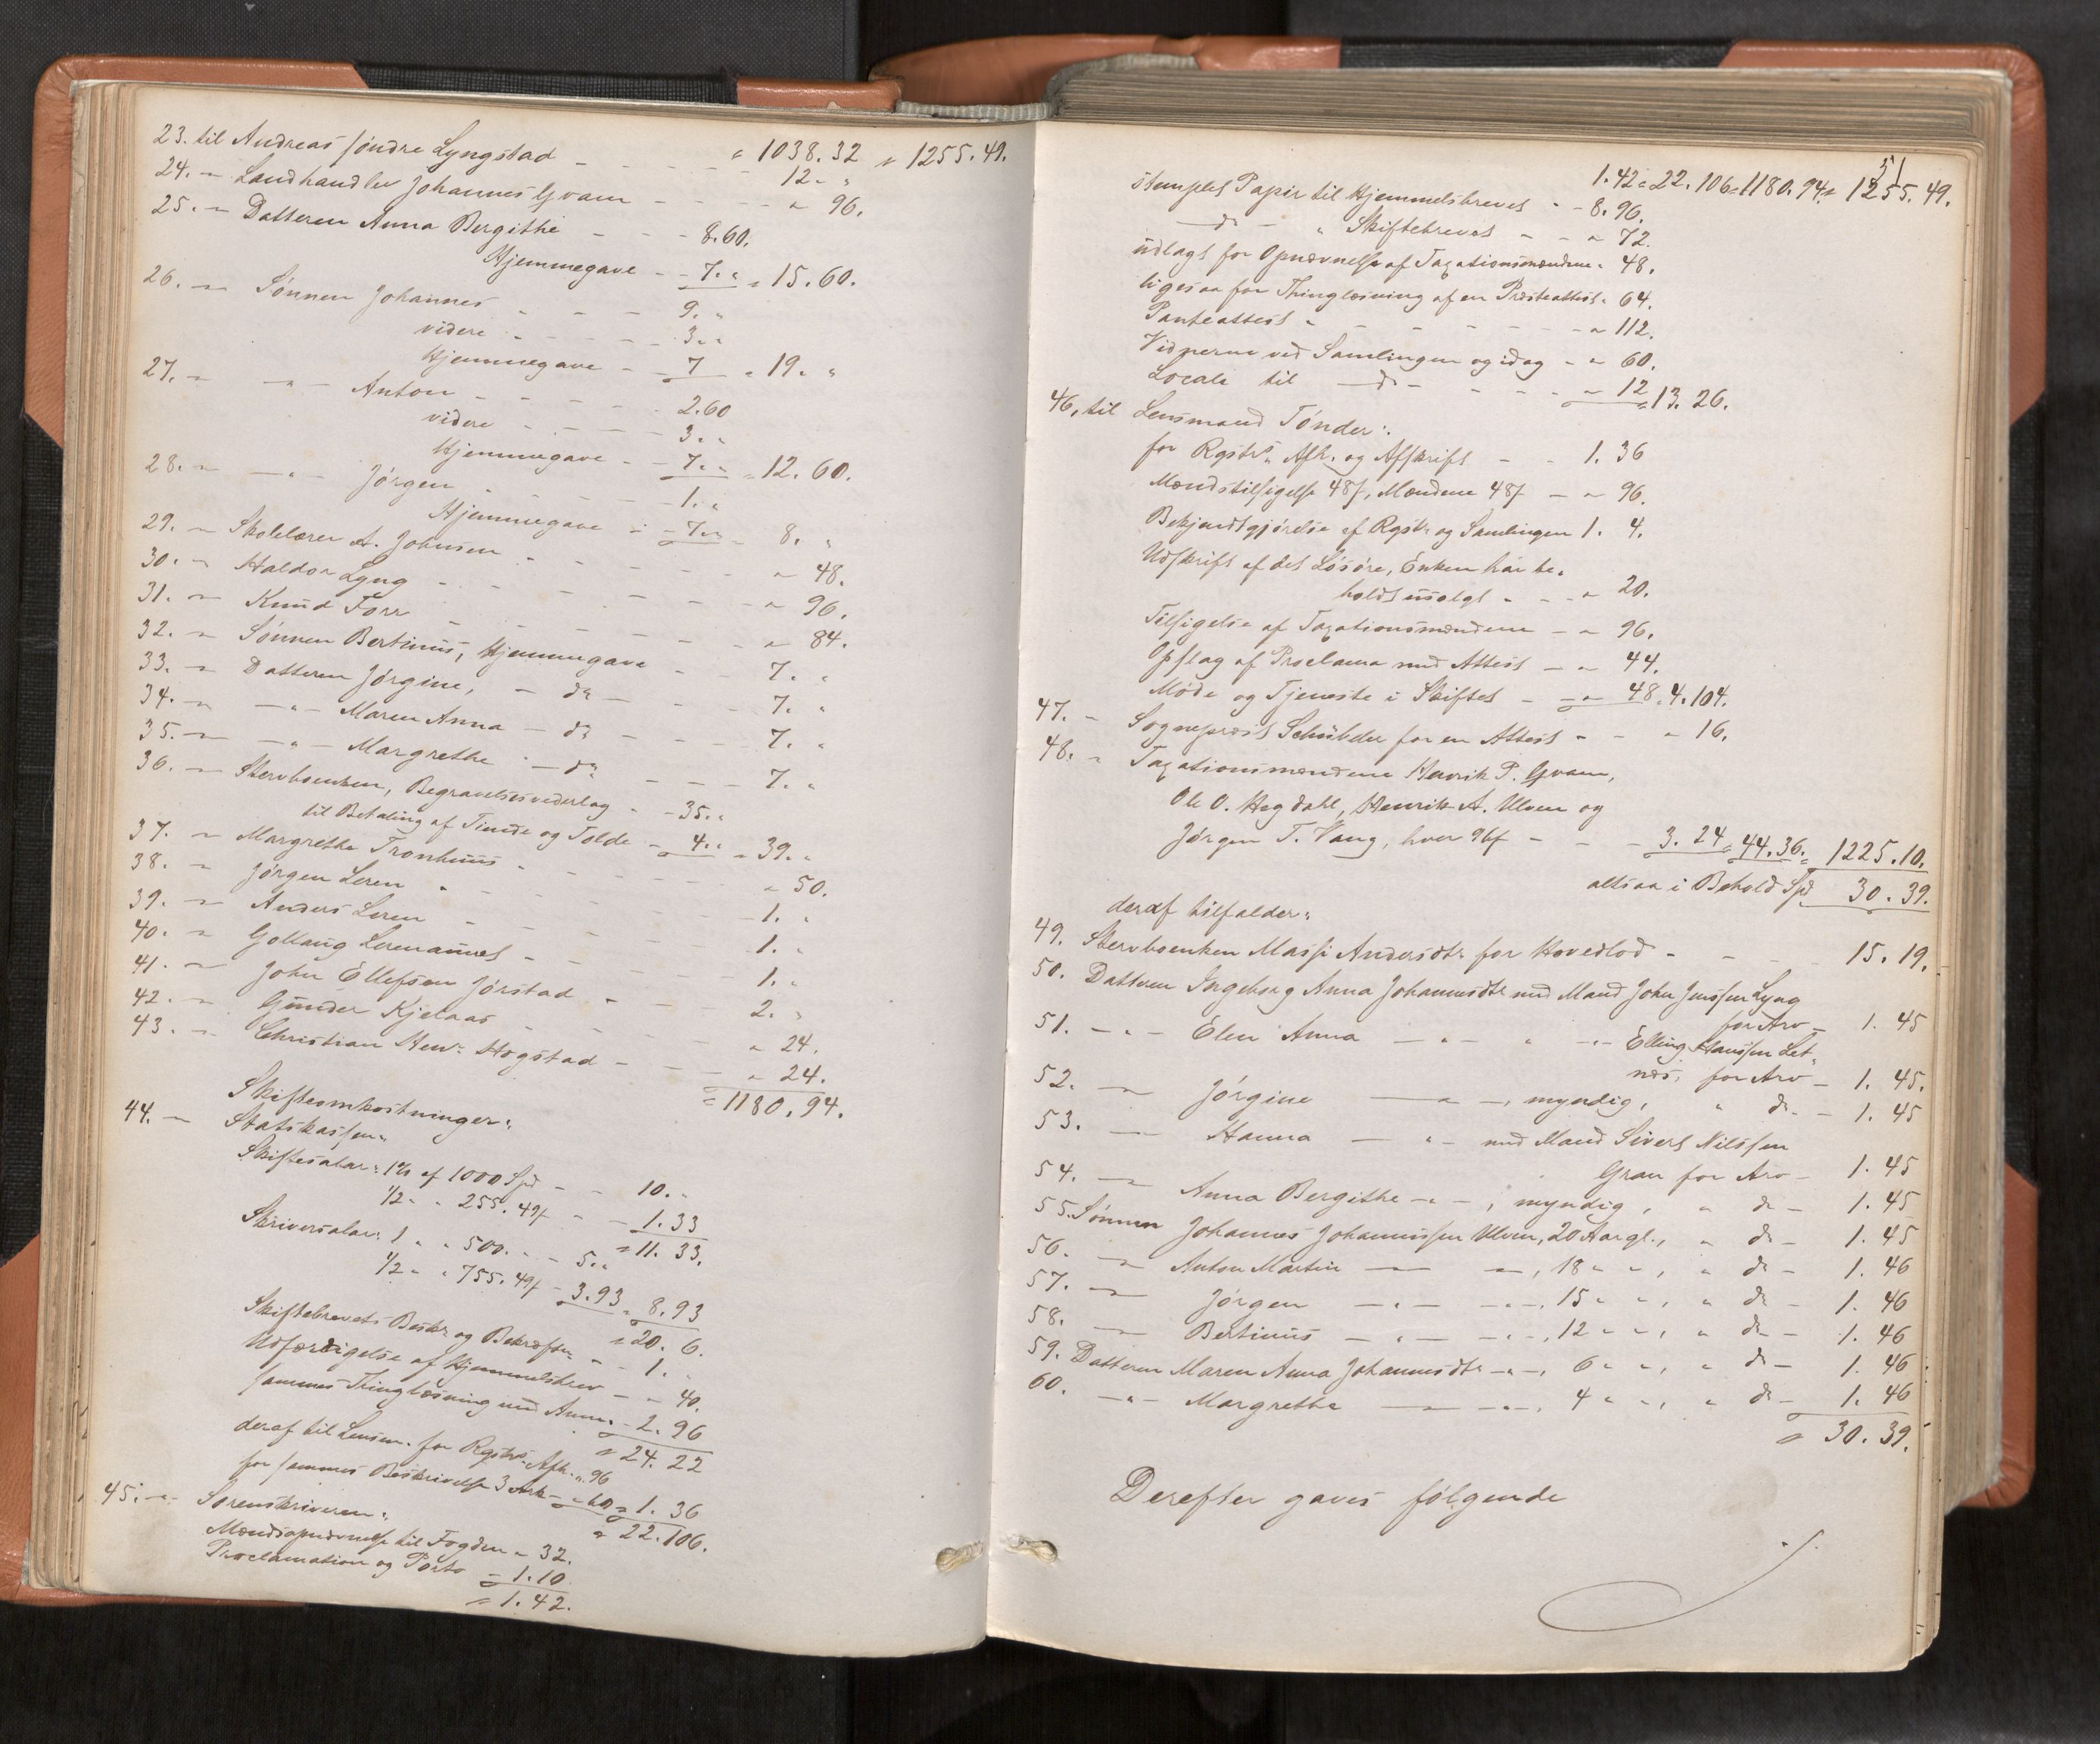 " 1038.32 " 1255.49.
23. til Andreas søndre Lyngstad - - - - 12. "
24. " Landhandler Johannes Gvam - - - " 96.
25. " Datteren Anna Bergithe - - - 8.60.
Hjemmegave - - 7. " " 15.60.
26. " Sønnen Johannes - - - 9. "
videre - - - - 3. "
Hjemmegave - - 7 " 19. "
27. " " Anton - - - - - 2.60
videre - - - - 3. "
Hjemmegave - - 7. " " 12.60.
28. " " Jørgen - - - - 1. "
Hjemmegave - - 7. " " 8. "
29. " Skolelærer A. Johnsen - - - - - " 48.
30. " Haldor Lyng - - - - - - " 96.
31. " Knud Forr - - - - - - " 84.
32. " Sønnen Bertinus, Hjemmegave - - 7. "
33. " Datteren Jørgine, - do - - - 7. "
34. " " Maren Anna - do - - - 7. "
35. " " Margrethe - do - - - 7. "
36. " Stervboenken, Begravelsesvederlag - - 35. "
til Betaling af Tiende og Tolde - 4. " " 39. "
37. " Margrethe Tronhuus - - - - - " 50.
38. " Jørgen Leren - - - - - - 1. "
39. " Anders Leren - - - - - - 1. "
40. " Gollaug Lerenaunet - - - - - 1. "
41. " John Ellefsen Jørstad - - - 2. "
42. " Gunder Kjelaas - - - - - " 24.
43. " Christian Henr. Hogstad - - - " 24.
" 1180.94.
Skifteomkostninger:
44. - Statskassen:
Skiftesalar: 1% af 1000 Spd - - 10. "
1/2 " " 255.49 f - - 1.33
" 11.33.
Skriversalar: 1 " " 500. " - - 5. "
1/2 " " 755.49 f - 3.93 " 8.93
" 20.6.
Skiftebrevets Beskr. og Bekræft. - - 1. "
Udfærdigelse af Hjemmelsbrev - - " 40.
sammes Thinglæsning med Anm. - 2.96
" 24.22
deraf til Lensm. for Rgstr. Afh. " 96
for sammes Beskrivelse 3 Ark - " 60 " 1.36
" 22.106.
45. - Sorenskriveren:
Mændsopnævnelse til Fogden " 32.
Proclamation og Porto - 1.10
" 1.42.
51
1.42 " 22.106 " 1180.94 " 1255.49.
stemplet Papir til Hjemmelsbrevet - - 8.96.
do - " Skiftebrevet - - " 72.
udlagt for Opnævnelse af Taxationsmændene " 48.
ligesaa for Thinglæsning af en Præsteattest " 64.
Panteattest - - - - - - " 112.
Vidnerne ved Samlingen og idag - - " 60.
Locale til do - - - - - " 12 " 13.26.
46. til Lensmand Tønder:
for Rgstr. Afh. og Afskrift - - 1.36
Mændstilsigelse 48 f, Mændene 48 f - " 96.
Bekjendtgjørelse af Rgstr. og Samlingen 1.4.
Udskrift af det Løsøre, Enken har be-
holdt usolgt - - - " 20.
Tilsigelse af Taxationsmændene - " 96.
Opslag af Proclama med Attest - " 44.
Møde og Tjeneste i Skiftet - - " 48 " 4.104.
47. - Sognepræst Schübeler for en Attest - - " 16.
48. " Taxationsmændene Henrik P. Gvam,
Ole O. Hegdahl, Henrik A. Ulven og
Jørgen T. Vang, hver 96 f - - - 3.24 " 44.36. " 1225.10.
altsaa i Behold Spd. 30.39.
deraf tilfalder:
49. Stervboenken Massi Andersdtr for Hovedlod - - - 15.19.
50. Datteren Ingeborg Anna Johannesdtr med Mand John Jenssen Lyng
for Arv - 1.45
51. - " - Elen Anna - " - " - " - Elling Hanssen Let-
næs, for Arv - 1.45.
52. - Jørgine - " -, myndig, " do - 1.45
53. - Hanna - " - med Mand Sivert Nilssen
Gran for Arv - 1.45
54. - Anna Bergithe - " -, myndig, " do - 1.45
55. Sønnen Johannes Johannessen Ulven, 20 Aar gl., " do - 1.45
56. - Anton Martin - -, 18 " ", " do - 1.46
57. - Jørgen - " - - " -, 15 " ", " do - 1.46
58. - Bertinus - " - - " -, 12 " ", " do - 1.46
59. Datteren Maren Anna Johannesdtr - " -, 6 " ", " do - 1.46
60. - " - Margrethe - - " -, 4 " ", " do - 1.46
" 30.39.
Derefter gaves følgende